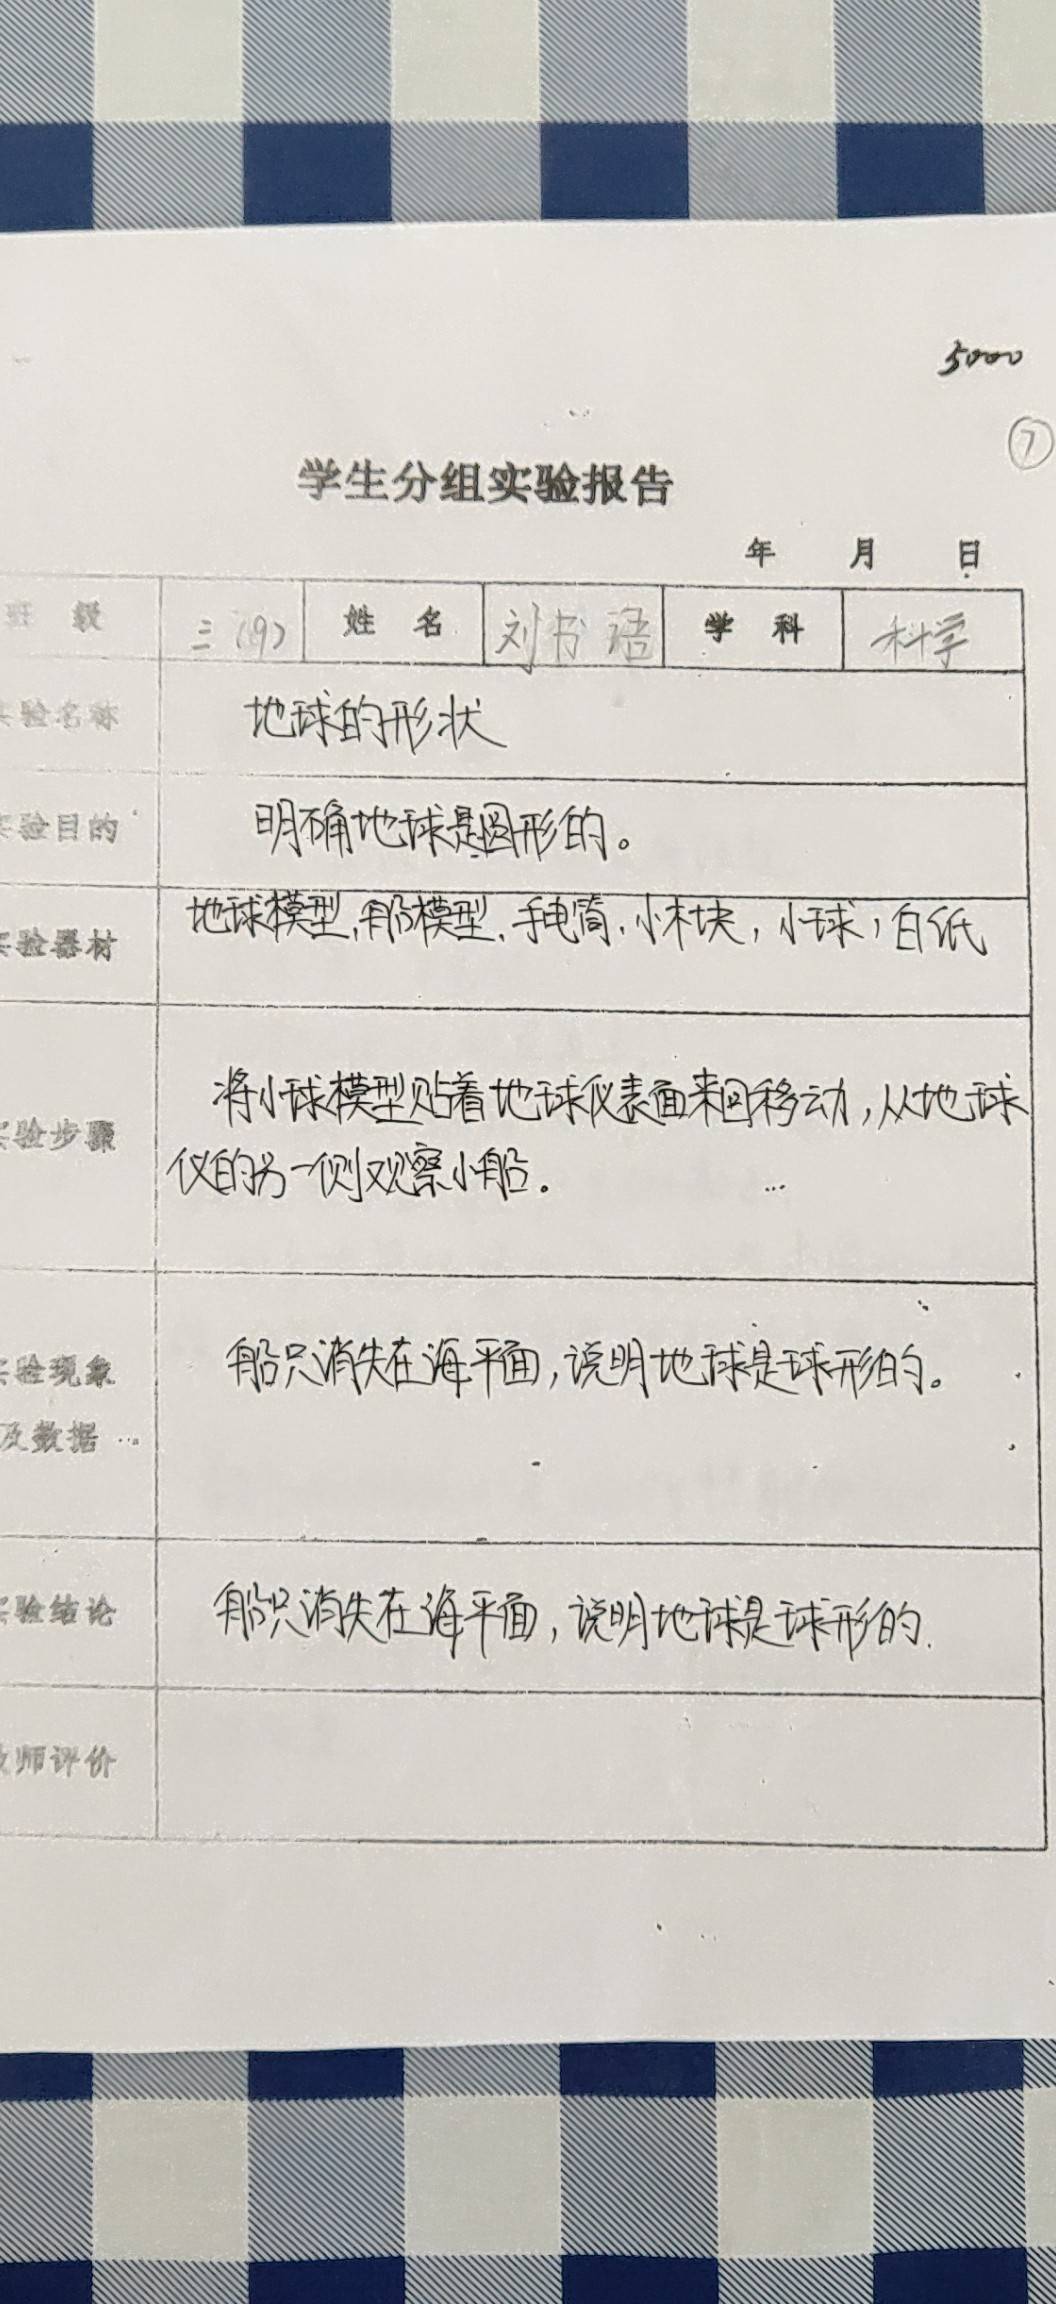 5000
⑦
学生分组实验报告
年 月 日
班 级 三(9) 姓 名 刘书语 学 科 科学
实验名称 地球的形状
实验目的 明确地球是圆形的。
实验器材 地球模型,船模型、手电筒、小木块,小球,白纸
实验步骤 将小球模型贴着地球仪表面来回移动,从地球
仪的另一侧观察小船。
实验现象 船只消失在海平面,说明地球是球形的。
及数据
实验结论 船只消失在海平面,说明地球是球形的.
教师评价